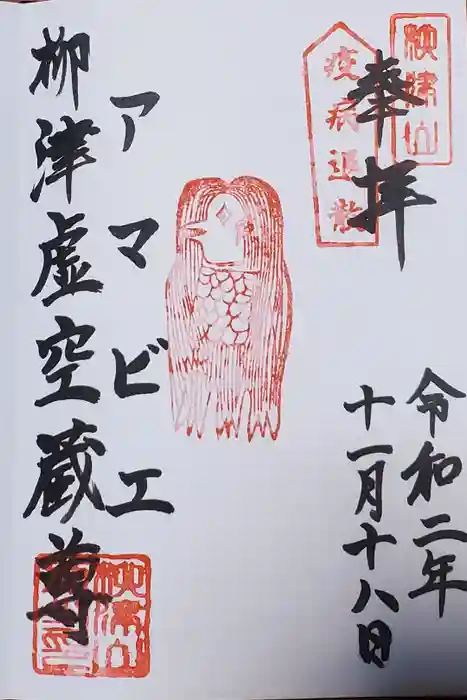 柳津山
奉拝
疫病退散
令和二年
十一月十八日
アマビエ
柳津虚空蔵尊